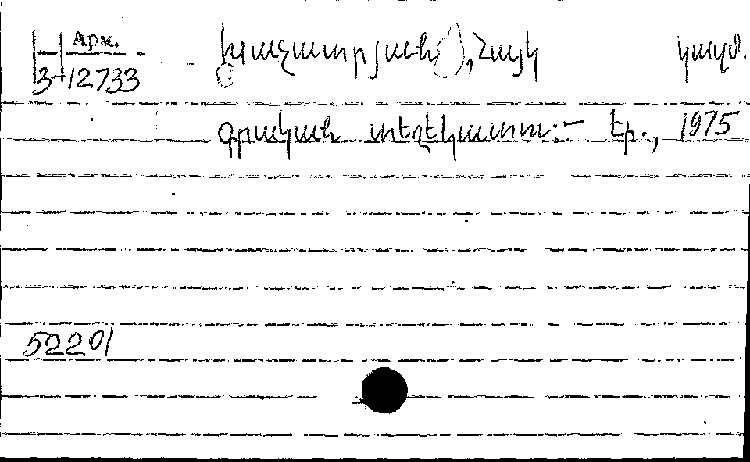 Արխ. Խաչատրյան, Հայկ կազմ.
3-12733
Գրական տեղեկատու:- Եր., 1975
52201